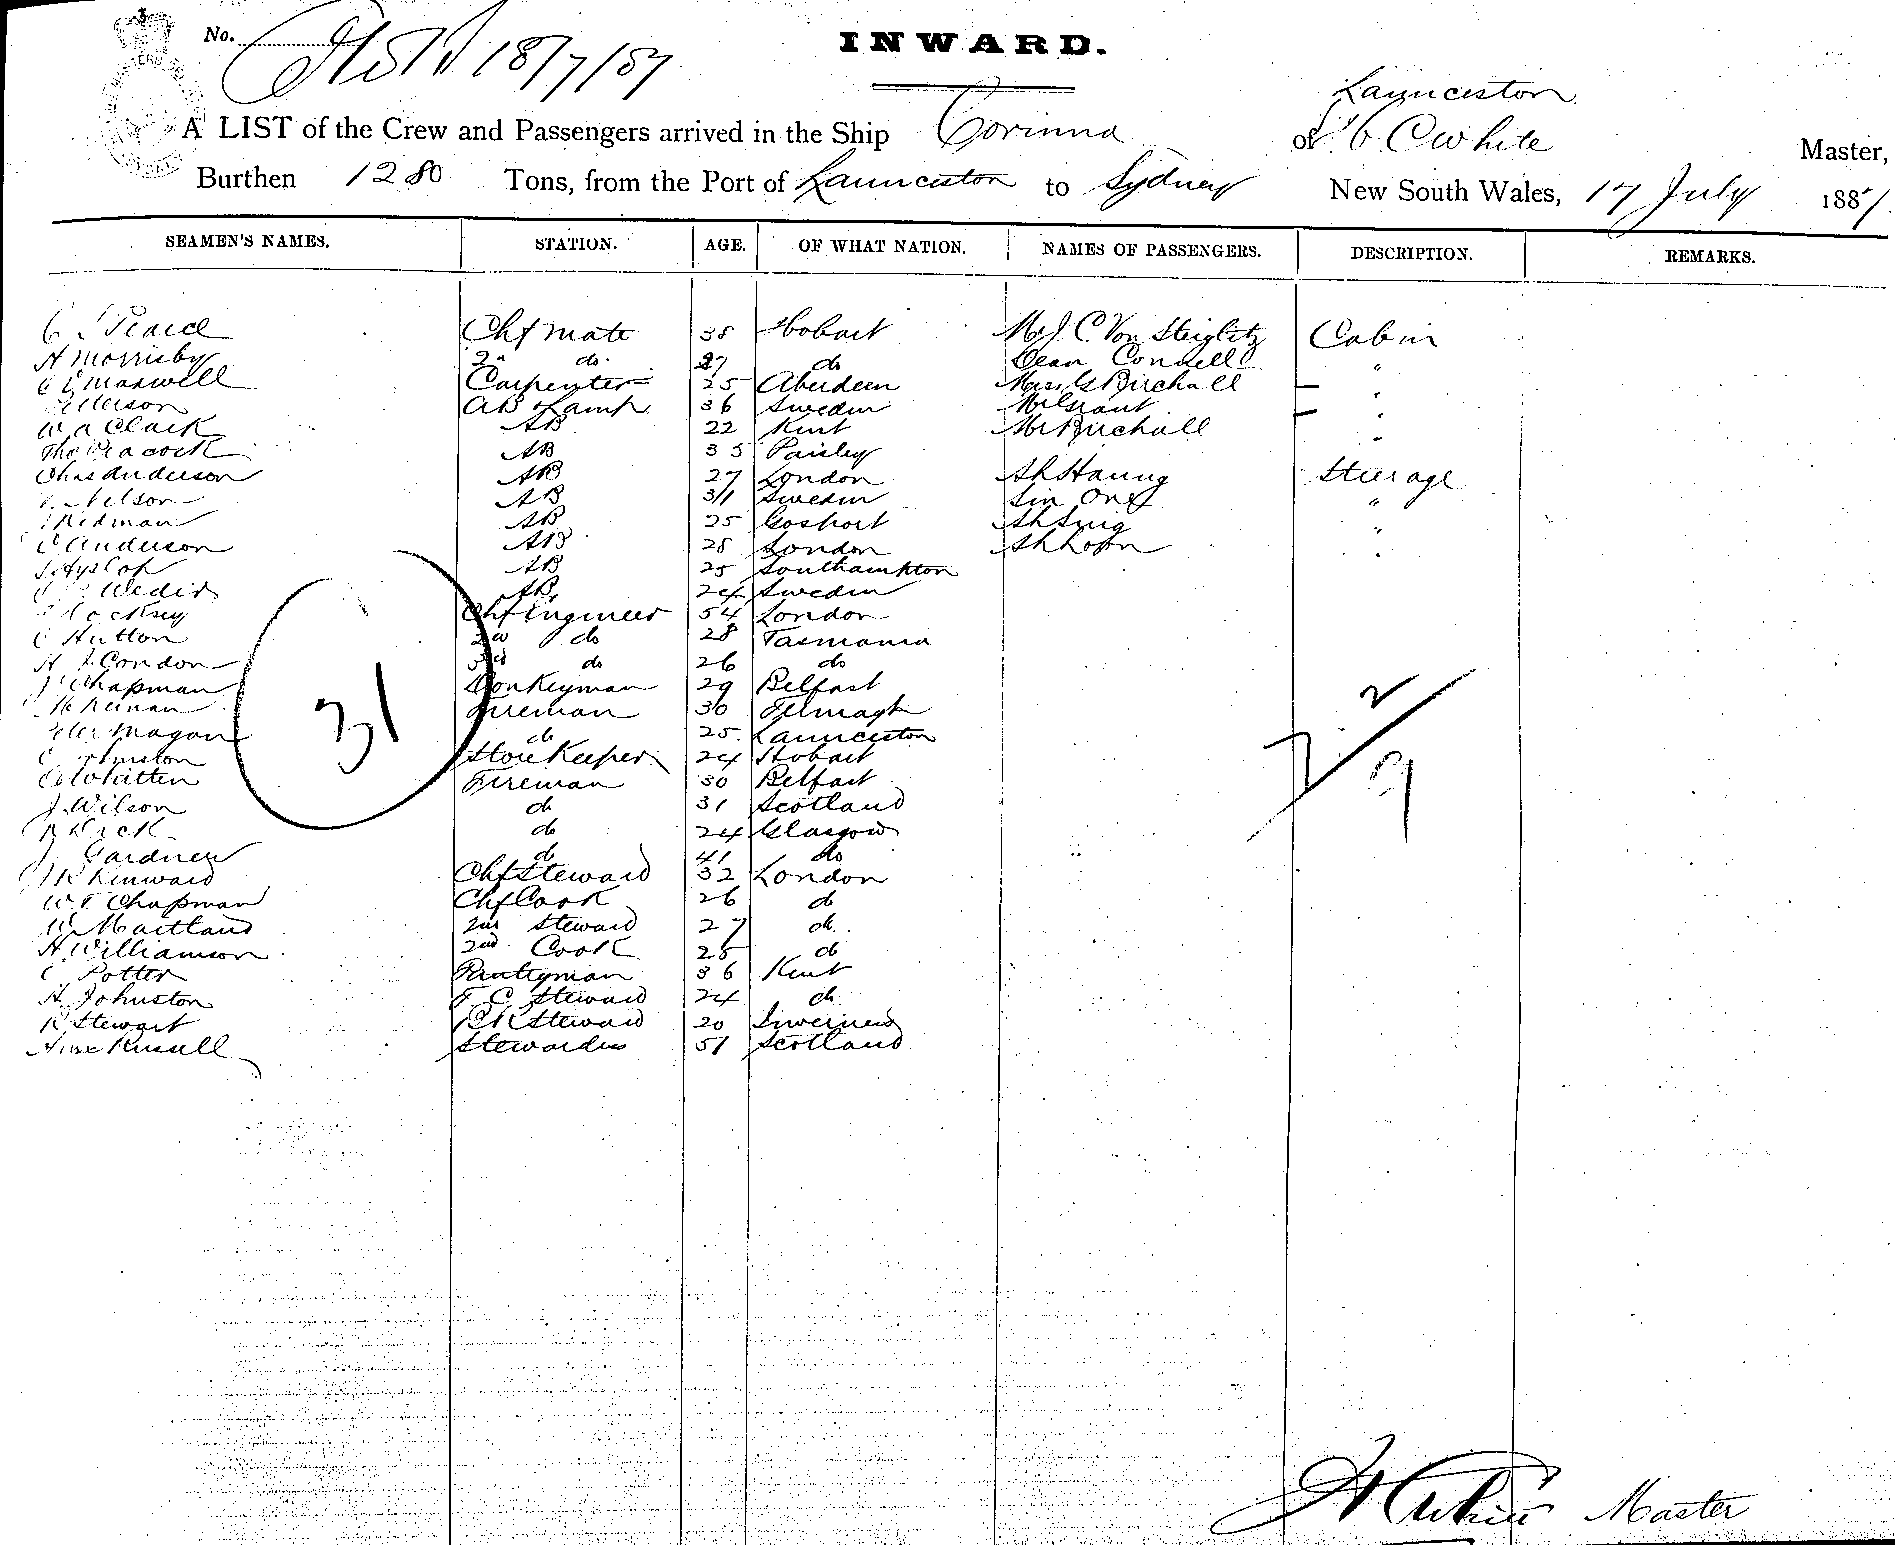 No. 18/7/87
INWARD.
Launceston
A LIST of the Crew and Passengers arrived in the Ship Corinna of C White Master,
Burthen 1280 Tons, from the Port of Launceston to Sydney New South Wales, 17 July 1887
SEAMEN'S NAMES. STATION. AGE. OF WHAT NATION. NAMES OF PASSENGERS. DESCRIPTION. REMARKS.
Chf Mate 38 Hobart Mr J. C. Von Steiglitz Cabin
A Morrisby 2nd do 27 do Dean Connell "
Maxwell Carpenter 25 Aberdeen Birchall "
Peterson AB Lamp 36 Sweden Mr Grant "
W A Clark AB 22 Kent Mr Birchall "
Tho Peacock AB 35 Paisley
Chas Anderson AB 27 London Ah Haung Steerage
Nelson AB 31 Sweden Sin One "
Redman AB 25 Gosport Ah Sing "
C Anderson AB 28 London "
J Hyslop AB 25 Southampton
AB 24 Sweden
Chf Engineer 54 London
C Hutton 2nd do 28 Tasmania
A J Condon 3rd do 26 do
J Chapman Donkeyman 29 Belfast
Fireman 30
Peter Magan do 25 Launceston
Store Keeper 24 Hobart
Whitten Fireman 30 Belfast
J Wilson do 31 Scotland
do 24 Glasgow
J Gardner do 41 do
Kenward Chf Steward 32 London
W. T. Chapman Chf Cook 26 do
W Maitland 2nd Steward 27 do
A Williamson 2nd Cook 25 do
C Potter Pantryman 36 Kent
A Johnston F. C. Steward 24 do
R Stewart Steward 20 Inverness
Russell Stewardess 51 Scotland
31
9
Master